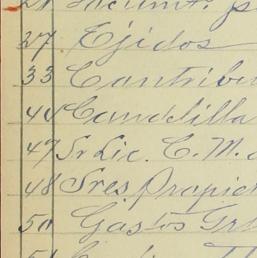 27 Ejidos
33 Contribu
44 Candelilla
47 Sr Lic. C. M. a
48 Sres Propie
50 Gastos Gr